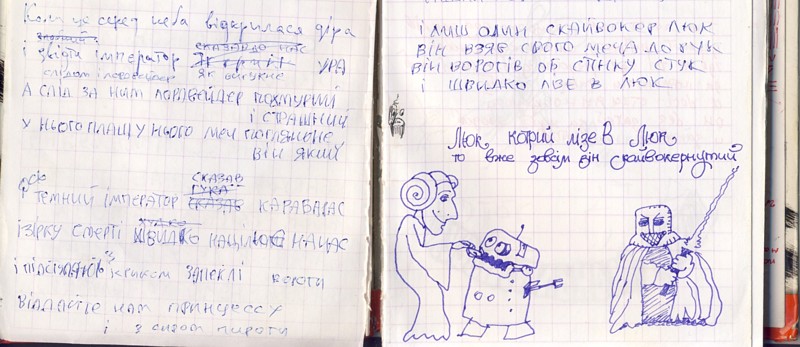 Коли це серед неба відкрилася діра
і звідти імператор сказав до нас УРА
як рикне
А слід за ним лордвейдер похмурий
і страшний
У нього плащ у нього меч погляньте
він який
Ось темний імператор сказав КАРАБАС
і зірку смерті швидко націлює на нас
і кричат запеклі вороги
віддайте нам принцессу
і з сиром пироги
і лиш один скайвокер люк
він взяв свого меча до рук
він ворогів об стінку стук
і швидко лізе в люк
Люк котрий лізе в люк
то вже зовсім він скайвокернутий